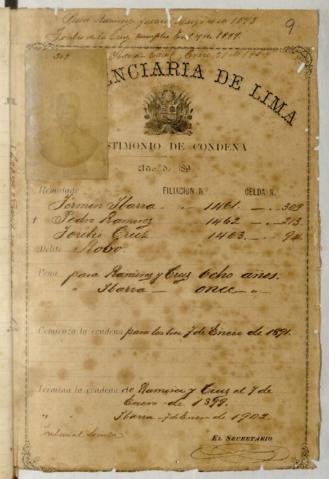 9
Pedro Ramírez 1893
Toribio de la Cruz cumplió Enero 7 de 1899.
309
PENITENCIARIA DE LIMA
TESTIMONIO DE CONDENA
de 189
Rematado FILIACION N.° CELDA N.°
Fermin Ibarra " " 1461. — . 309
+ Pedro Ramirez 1462 — . 213.
Toribio Cruz 1463. — . 94
Delito Robo
Pena para Ramirez y Cruz Ocho años.
" Ibarra — once — "
Comienza la condena para los tres 7 de Enero de 1891.
Termina la condena de Ramirez y Cruz el 7 de
Enero — de 1899.
" Ibarra — 7 de Enero de 1902.
Tribunal
EL SECRETARIO